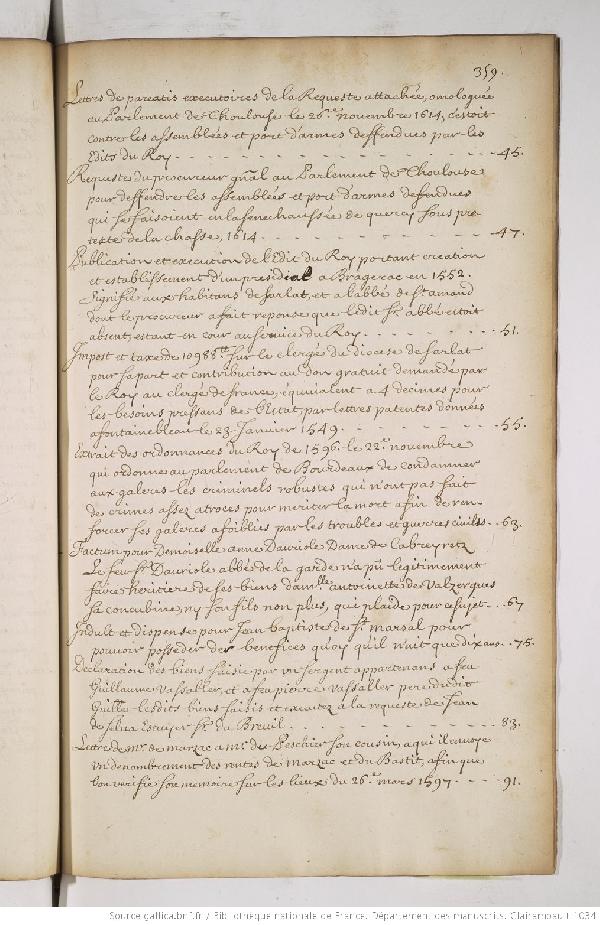 359.
Lettres de pareatis executoires de la Requeste attachée, omologuée
au Parlement de Thoulouse le 26.e novembre 1614, c'estoit
contre les assemblées et port d'armes deffendues par les
Edits du Roy - - - - - - - - - - 45.
Requeste du procureur gnãl au Parlement de Thoulouse
pour deffendre les assemblées et port d'armes deffendues
qui se faisoient en la senechaussée de quercy sous pre-
texte de la chasse, 1614 - - - - - - - - 47.
Publication et execution de l'Edit du Roy portant creation
et establissement d'un presidial a Bragerac en 1552.
signifié aux habitans de sarlat, et a l'abbé de St. amand
dont le procureur a fait reponse que ledit Sr. abbé estoit
absent, estant en cour au service du Roy. - - - - - - 51.
Impost et taxe de 1098 sur le clergé du diocese de sarlat
pour sa part et contribution au don gratuit demandé par
le Roy au clergé de france, équivalent a 4 decimes pour
les besoins pressans de l'Estat, par lettres patentes données
a fontainebleau le 23 Janvier 1549. - - - - - - - 55.
Extrait des ordonnances du Roy de 1596. le 22.e novembre
qui ordonne au parlement de Bourdeaux de condamner
aux galeres les criminels robustes qui n'ont pas fait
des crimes assez atroces pour meriter la mort afin de ren-
forcer ses galeres afoiblies par les troubles et guerres civiles. - 63.
Factum pour Demoiselle anne Dauriole Dame de Cabreyretz
Le feu Sr. Dauriole abbé de la garde n'a pû legitimement
faire heritiere de ses biens dam.lle antoinette de Valzergues
sa concubine, ny son fils non plus, qui plaide pour ce sujet - - 67
Indult et dispense pour Jean baptiste de St. marsal pour
pouvoir posséder des benefices quoy qu'il n'ait que dix ans - 75.
Declaration des biens saisis par un sergent appartenans a feu
Guillaume Vassaller, et a feu pierre Vassaller pere dudit
Guille. lesdits biens saisis et executez à la requeste de Jean
de Escuyer Sr. du Breuil - - - - - - - - 83.
Lettre de Mr. de marzac a Mr. de Peschier son cousin, a qui il envoye
un denombrement des rentes de Marzac et du Bastit, afin que
l'on verifie son memoire sur les lieux du 26.e mars 1597 - - - - 91.
Source gallica.bnf.fr / Bibliothèque nationale de France. Département des manuscrits. Clairambault 1034